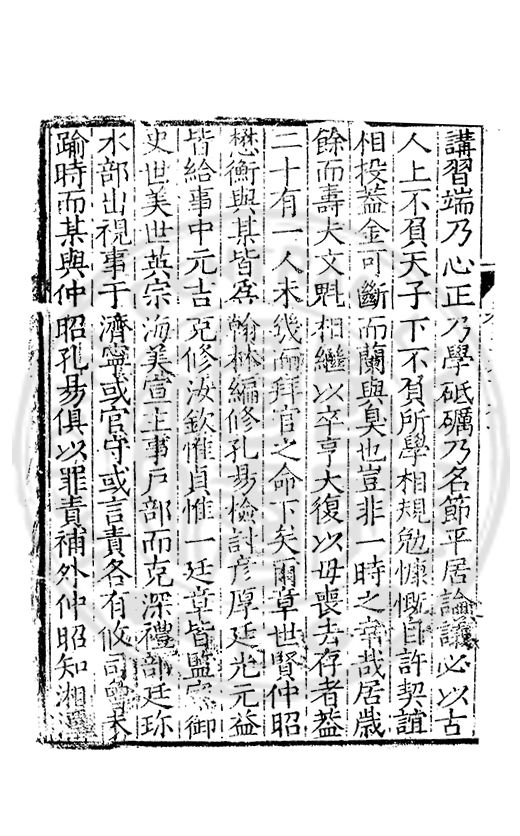 講習端乃心正乃學砥礪乃名節平居論議必以古
人上不負天子下不負所學相規勉慷慨自許契誼
相投蓋金可斷而蘭與臭也豈非一時之幸哉居歲
餘而壽夫文魁相繼以卒亨大復以母喪去存者蓋
二十有一人未幾而拜官之命下矣爾章世賢仲昭
懋衡與某皆為翰林編修孔昜檢討彦厚廷光元益
皆給事中元吉克修汝欽惟貞惟一廷章皆監察御
史世美世英宗海美宣主事戶部而克深禮部廷珍
水部出視事于濟寧或官守或言責各有攸司曾未
踰時而某與仲昭孔昜俱以罪責補外仲昭知湘潭